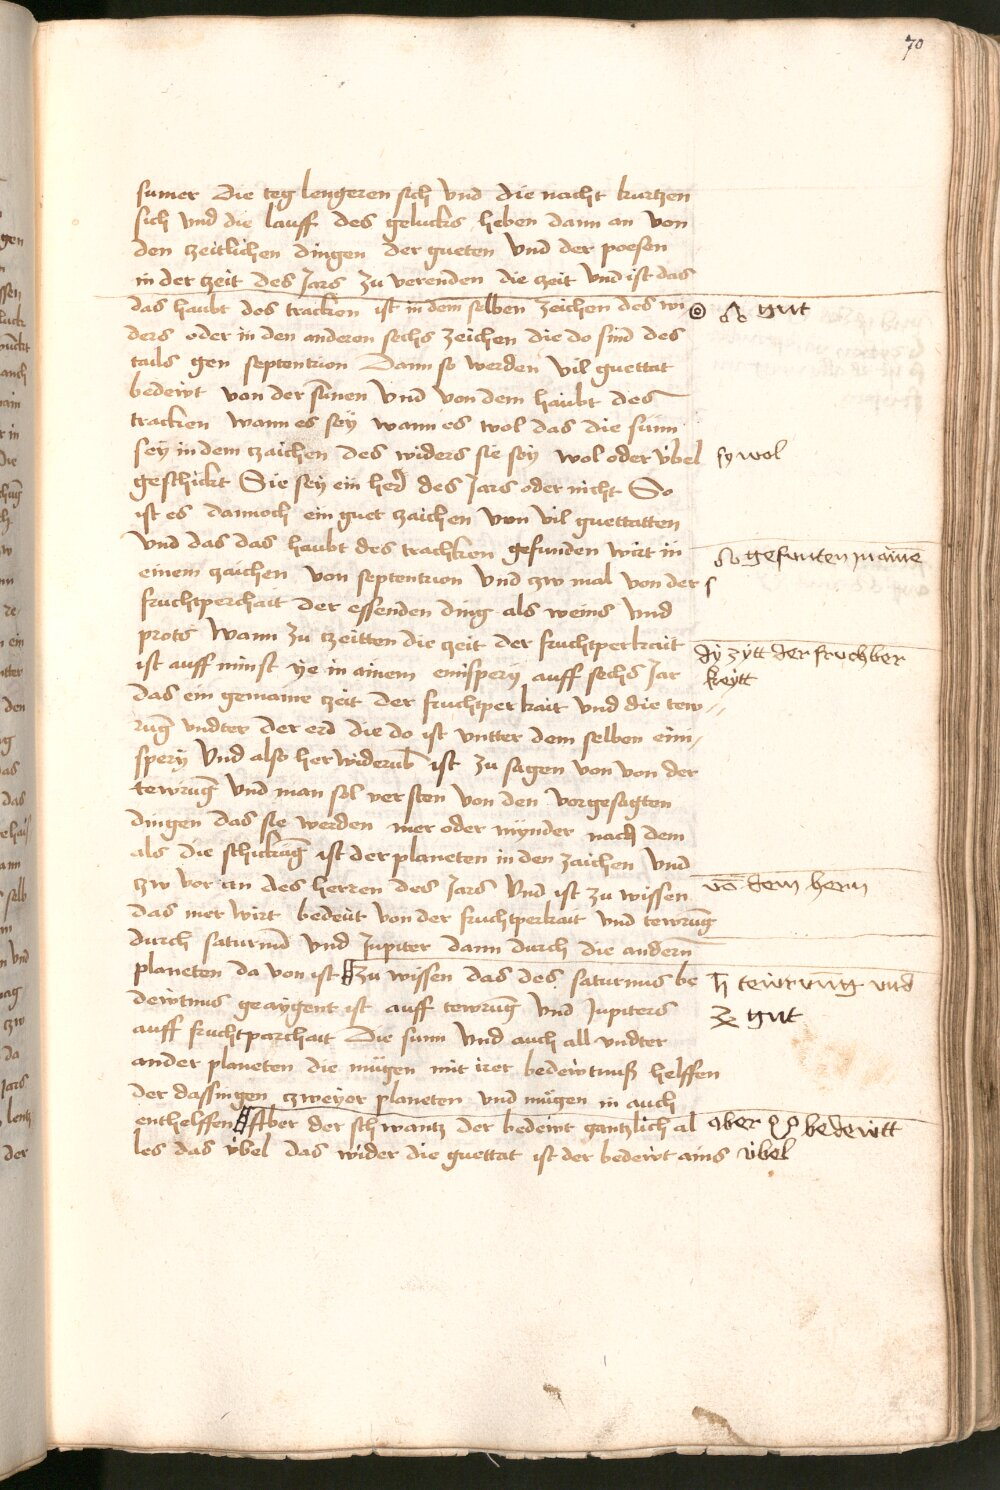 70
sumer Die teg lengeren sich vnd die nacht kurtzen
sich vnd die lauff des gelucks heben dann an von
den czeitlichen dingen der gueten vnd der poesen
in der czeit des Jars zu verenden die czeit vnd ist das
das haubt des tracken ist in dem selben zeichen des wi
☉ ☊ gut
ders oder in den anderen sechs zeichen die do sind des
tails gen septentrion Dann so werden vil guettat
bedewt von der sunen vnd von dem haubt des
tracken wann es sey wann es wol das die sunn
sey in dem czaichen des widers sie sey wol oder vbel
sy wol
geschickt Sie sey ein herd des Jars oder nicht So
ist es dannoch ein guet czaichen von vil guettatten
vnd das das haubt des trachken gefunden wirt in
☊ gefunten
einem zaichen von septentrion vnd zw mal von der
fruchtperchait der essenden ding als weins vnd
prots wann zu czeitten die czeit der fruchtperkait
dy zytt der fruchber
keytt
ist auff minst ye in ainem emispery auff sechs Jar
das ein gemaine czeit der fruchtperkait vnd die tew
rug vndter der erd die do ist vntter dem selben emi
spery vnd also her widerub ist zu sagen von von der
tewrug vnd man sol versten von den vorgesagten
dingen das sie werden mer oder mynder nach dem
als die schickug ist der planeten in den zaichen vnd
zw vor an des herren des Jars vnd ist zu wissen
vo dem hern
das mer wirt bedeut von der fruchtperkait vnd tewrug
durch saturnu vnd Jupiter dann durch die andern
planeten da von ist zu wissen das des saturnus be
♄ tewrung vnd
dewtnus geaygent ist auff tewrug vnd Jupiters
♃ gut
auff fruchtparchait Die sunn vnd auch all vndter
ander planeten die mugen mit irer bedewtnuß helffen
der dassingen czweyer planeten vnd mugen in auch
enthelffen Aber der schwantz der bedewt gantzlich al
aber ☋ bedewtt
les das vbel das wider die guettat ist der bedewt ains
vbel